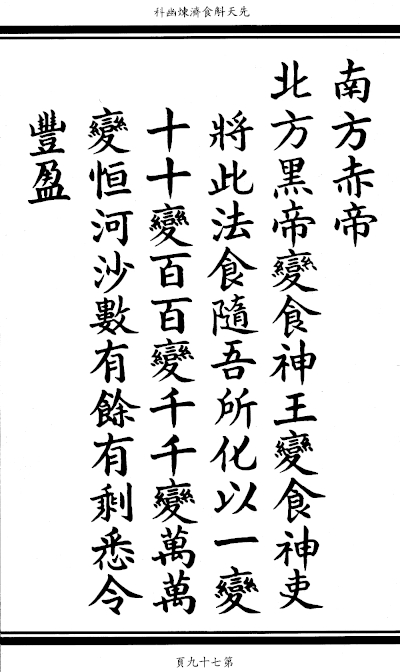 先天斛食濟煉幽科
南方赤帝
北方黑帝變食神王變食神吏
將此法食隨吾所化以一變
十十變百百變千千變萬萬
變恒河沙數有餘有剩悉令
豐盈
第七十九頁